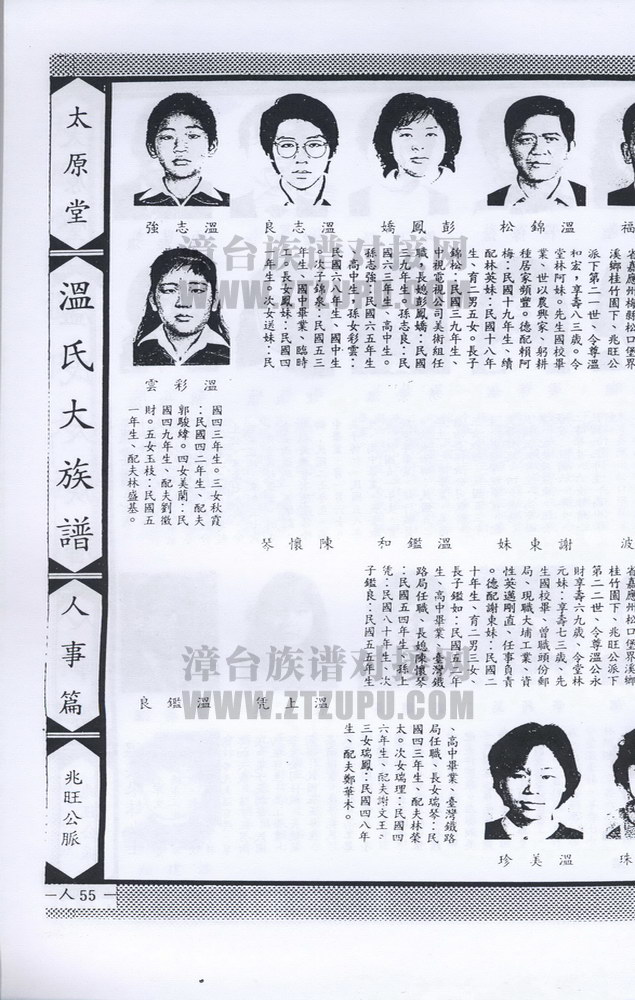 太原堂
溫氏大族譜
人事篇
兆旺公脈
人 55
福
溫錦松
彭鳳嬌
溫志良
溫志強
省嘉應州梅縣松口堡界
溪鄉桂竹園下、兆旺公
派下第二一世、令尊溫
和宏，享壽八三歲。令
堂林阿妹。先生國校畢
業、世以農興家、躬耕
種居家頗豐。德配賴阿
梅：民國十九年生、續
配林英妹：民國十八年
生、育二男五女。長子
錦松：民國三九年生、
中視電視公司美術組任
職，長媳彭鳳嬌：民國
三九年生、孫志良：民
國六三年生、高中生。
孫志強：民國六五年生
、高中生、孫女彩雲：
民國六八年生、國中生
。次子錦泉：民國五三
年生、國中畢業、臨時
工，長女鳳妹：民國四
十年生。次女送妹：民
溫彩雲
國四三年生。三女秋霞
：民國四二年生、配夫
郭駿緯。四女美蘭：民
國四九年生、配夫劉徵
財。五女玉枝：民國五
一年生、配夫林盛基。
波
謝東妹
溫鑑和
陳懷琴
省嘉應州松口堡界溪鄉
桂竹園下、兆旺公派下
第二二世、令尊溫公永
財享壽六九歲、令堂林
元妹：享壽七三歲、先
生國校畢、曾職頭份郵
局、現職大埔工業、資
性英邁剛直、任事負責
。德配謝東妹：民國二
十年生、育二男三女
長子鑑如：民國五二年
生、高中畢業、臺灣鐵
路局任職、長媳陳懷琴
：民國五四年生、孫上
凭：民國八十年生、次
子鑑良：民國五五年生
溫上凭
溫鑑良
、高中畢業、臺灣鐵路
局任職、長女瑞琴：民
國四三年生、配夫林榮
太。次女瑞理：民國四
六年生、配夫謝文王
三女瑞鳳：民國四八年
生、配夫鄭華木。
珠
溫美珍
漳台族谱对接网
WWW.ZTZUPU.COM
漳台族谱对接网
WWW.ZTZUPU.COM